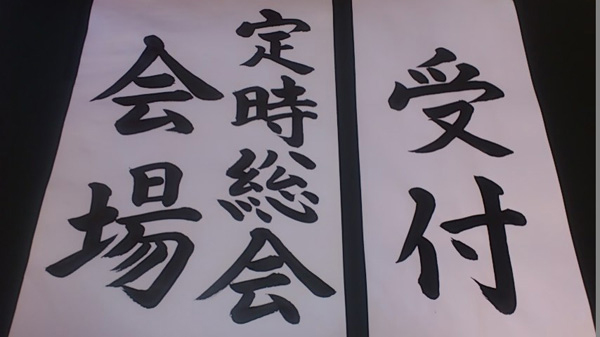 受付
定時総会
会場